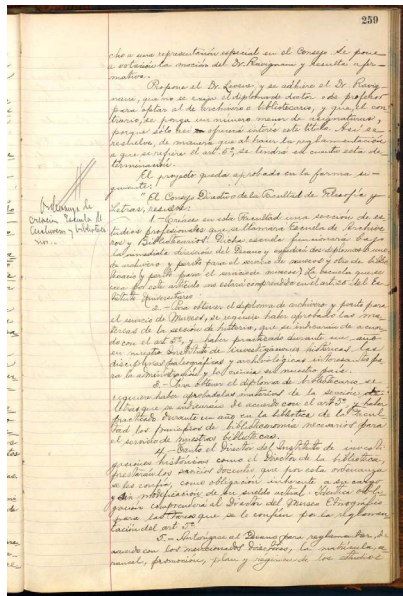 259
cho a una representación especial en el Consejo. Se pone
a votación la moción del Dr. Ravignani y resulta afir-
mativa.
Propone el Dr. Levene, y se adhiere el Dr. Ravig
nani, que no se exija el diploma de doctor o de profesor
para optar al de archivero o bibliotecario, y que, al con
trario, se ponga un número menor de asignaturas,
porque sólo así ofrecerá interés este título. Así se
resuelve, de manera que al hacer la reglamentación
a que se refiere el art. 5º, se tendrá en cuenta esta de
terminación.
El proyecto queda aprobado en la forma si-
guiente:
El Consejo Directivo de la Facultad de Filosofía y
Letras, resuelve:
Ordenanza de
creación Escuela de
Archiveros y biblioteca
rios.
1.- Créase en esta Facultad una sección de es-
tudios profesionales que se llamará Escuela de Archive
ros y Bibliotecarios. Dicha escuela funcionará bajo
la inmediata dirección del Decano, y expedirá dos diplomas: uno
de archivero y perito para el servicio de museos y otro de biblio
tecario
La escuela que se
crea por este artículo no estará comprendida en el art. 25 del Es-
tatuto Universitario.
2.- Para obtener el diploma de archivero y perito para
el servicio de Museos, se requiere haber aprobado las ma-
terias de la sección de historia, que se indicarán de acuer-
do con el art. 5º, y haber practicado durante un año
en nuestro Instituto de investigaciones históricas, las
disciplinas paleográficas y archivológicas
para la administración y la ciencia en nuestro país.
3.- Para obtener el diploma de bibliotecario se
requiere haber aprobado las materias de la sección
Letras que se indicarán de acuerdo con el art. 5º y haber
practicado durante un año en la biblioteca de la Facul
tad los principios de biblioteconomía necesarios para
el servicio de nuestras bibliotecas.
4.- Tanto el Director del Instituto de investi-
gaciones históricas como el Director de la biblioteca,
prestarán los servicios docentes que por esta ordenanza
se les confía, como obligación inherente a su cargo
y sin modificación de su sueldo actual. Idéntica obli-
gación comprenderá al Director del Museo Etnográfico
para las tareas que se le confíen por la reglamen-
tación del art. 5º.
5.- Autorízase al Decano para reglamentar, de
acuerdo con los mencionados Directores, la matrícula, a
rancel, promoción, plan y régimen de los estudios